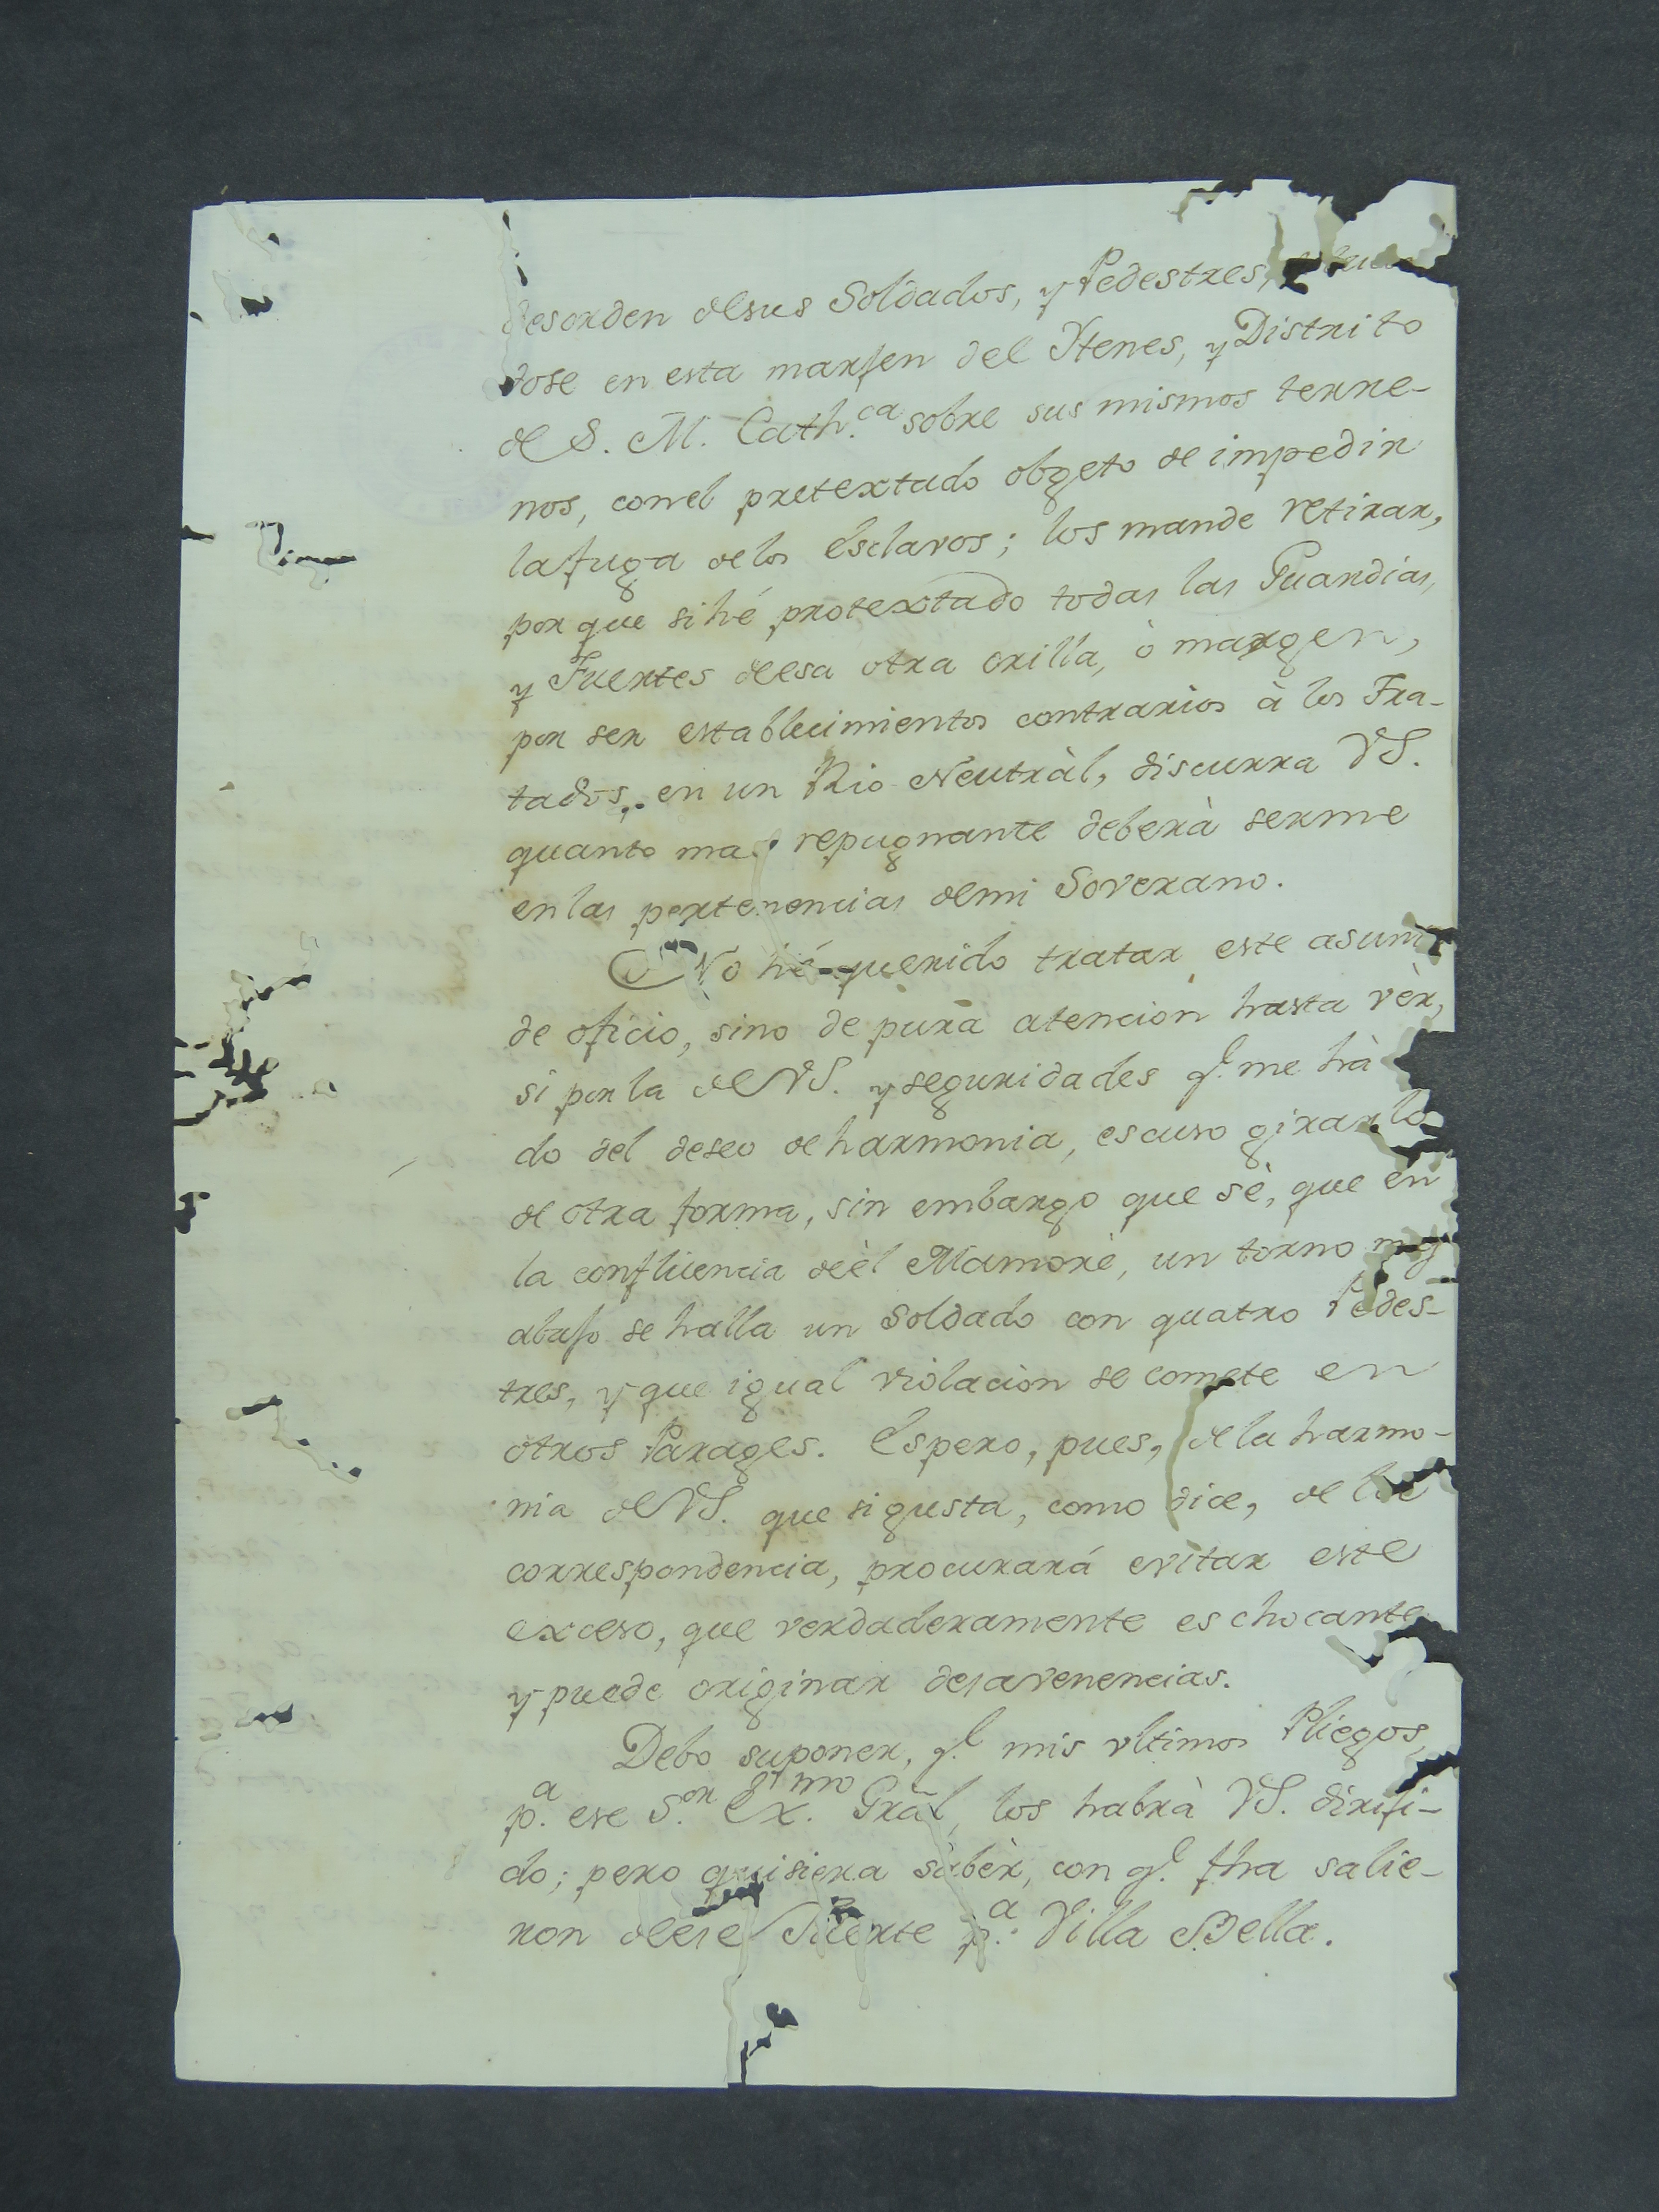 desorden de sus Soldados, y Pedestres,
dose en esta marjen del Ytenes, y Distrito
de S. M. Cath.ca sobre sus mismos terre-
nos, con el pretextado obgeto de impedir
la fuga de los Esclavos; los mande retirar,
por que si hé protextado todas las Guardias,
y Fuertes de esa otra orilla, ò margen,
por ser establecimientos contrarios à los Tra-
tados, en un Rio Neutràl, discurra VS.
quanto mas repugnante deberà serme
en las pertenencias de mi Soverano.
No hé querido tratar este asun
de oficio, sino de pura atencion hasta vèr,
si por la de VS. y seguridades q.e me hà
do del deseo de harmonia, escuso girarlo
de otra forma, sin embargo que sè, que en
la confluencia de èl Mamorè, un torno mas
abajo se halla un Soldado con quatro Pedes-
tres, y que igual violacion se comete en
otros Parages. Espero, pues, de la harmo-
nia de VS. que si gusta, como dice, de
correspondencia, procurará evitar este
exceso, que verdaderamente es chocante
y puede originar desavenencias.
Debo suponer, q.e mis vltimos Pliegos
p.a ese S.or Ex.mo Gràl, los habrà VS. diriji-
do; pero quisiera sabèr, con q.e fha salie-
ron de ese Fuerte p.a Villa Bella.